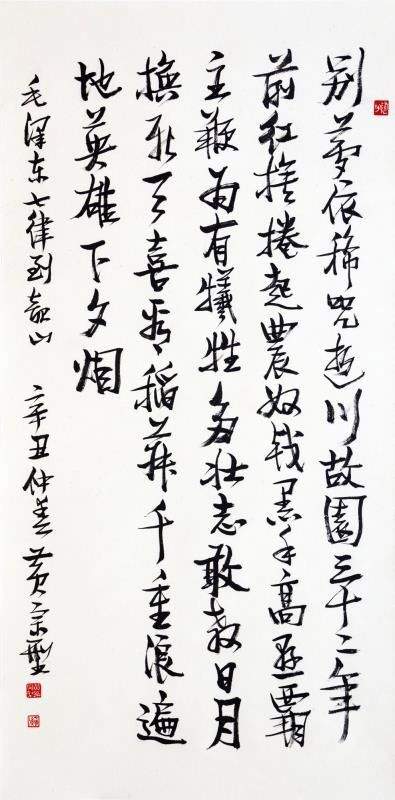 别梦依稀咒逝川故園三十二年
前红旗捲起農奴戟黑手高悬霸
主鞭为有犧牲多壮志敢教日月
換新天喜看稻菽千重浪遍
地英雄下夕烟
毛澤东七律到韶山 辛丑仲春 黄宗型